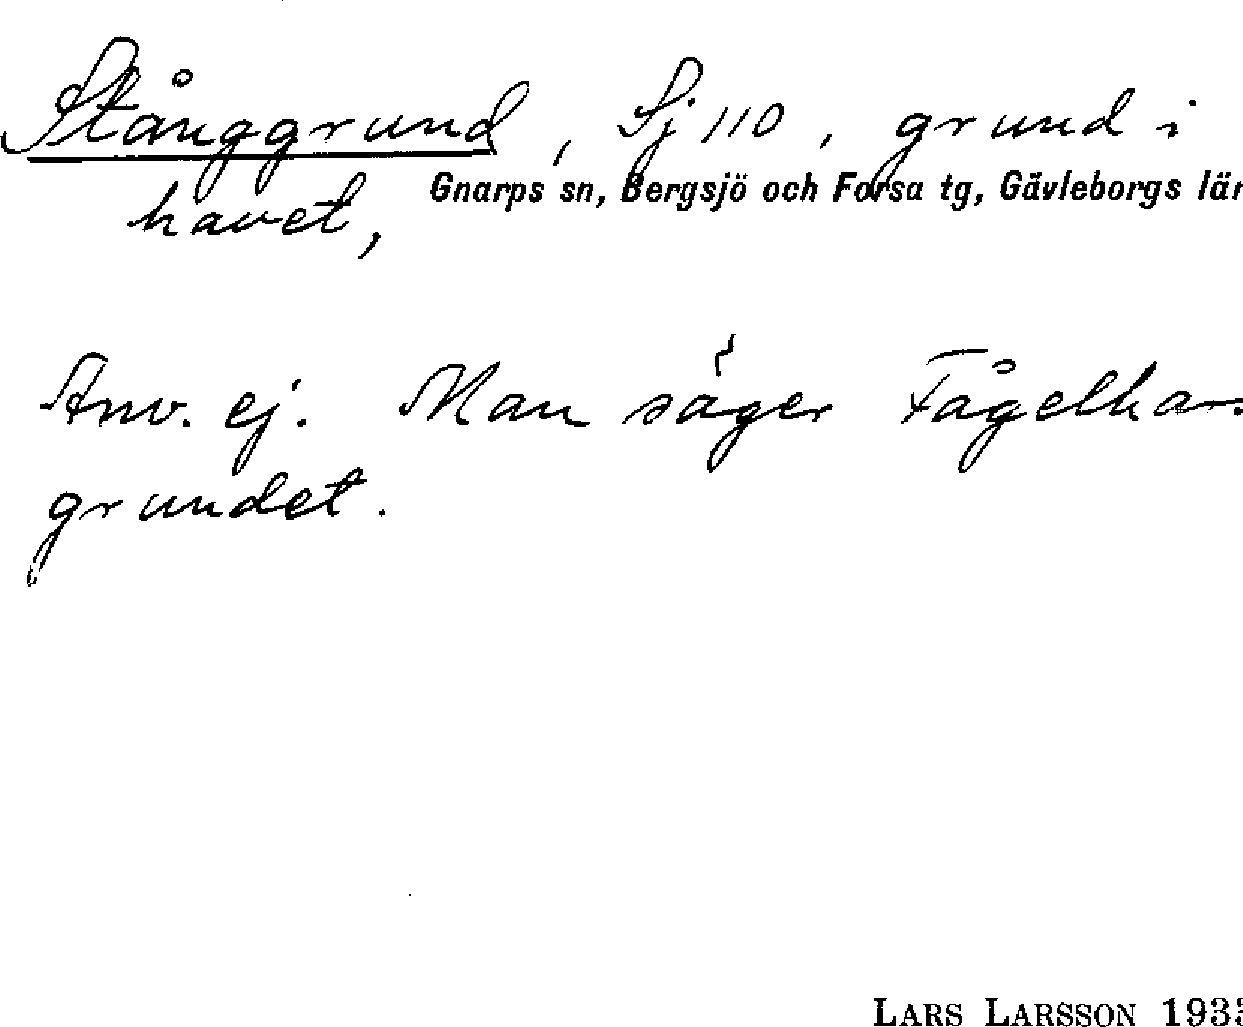 Stånggrund, Sj 110, grund i
Gnarps sn, Bergsjö och Forsa tg, Gävleborgs län
havet,
Anv. ej. Man säger Fågelhar-
grundet.
LARS LARSSON 193